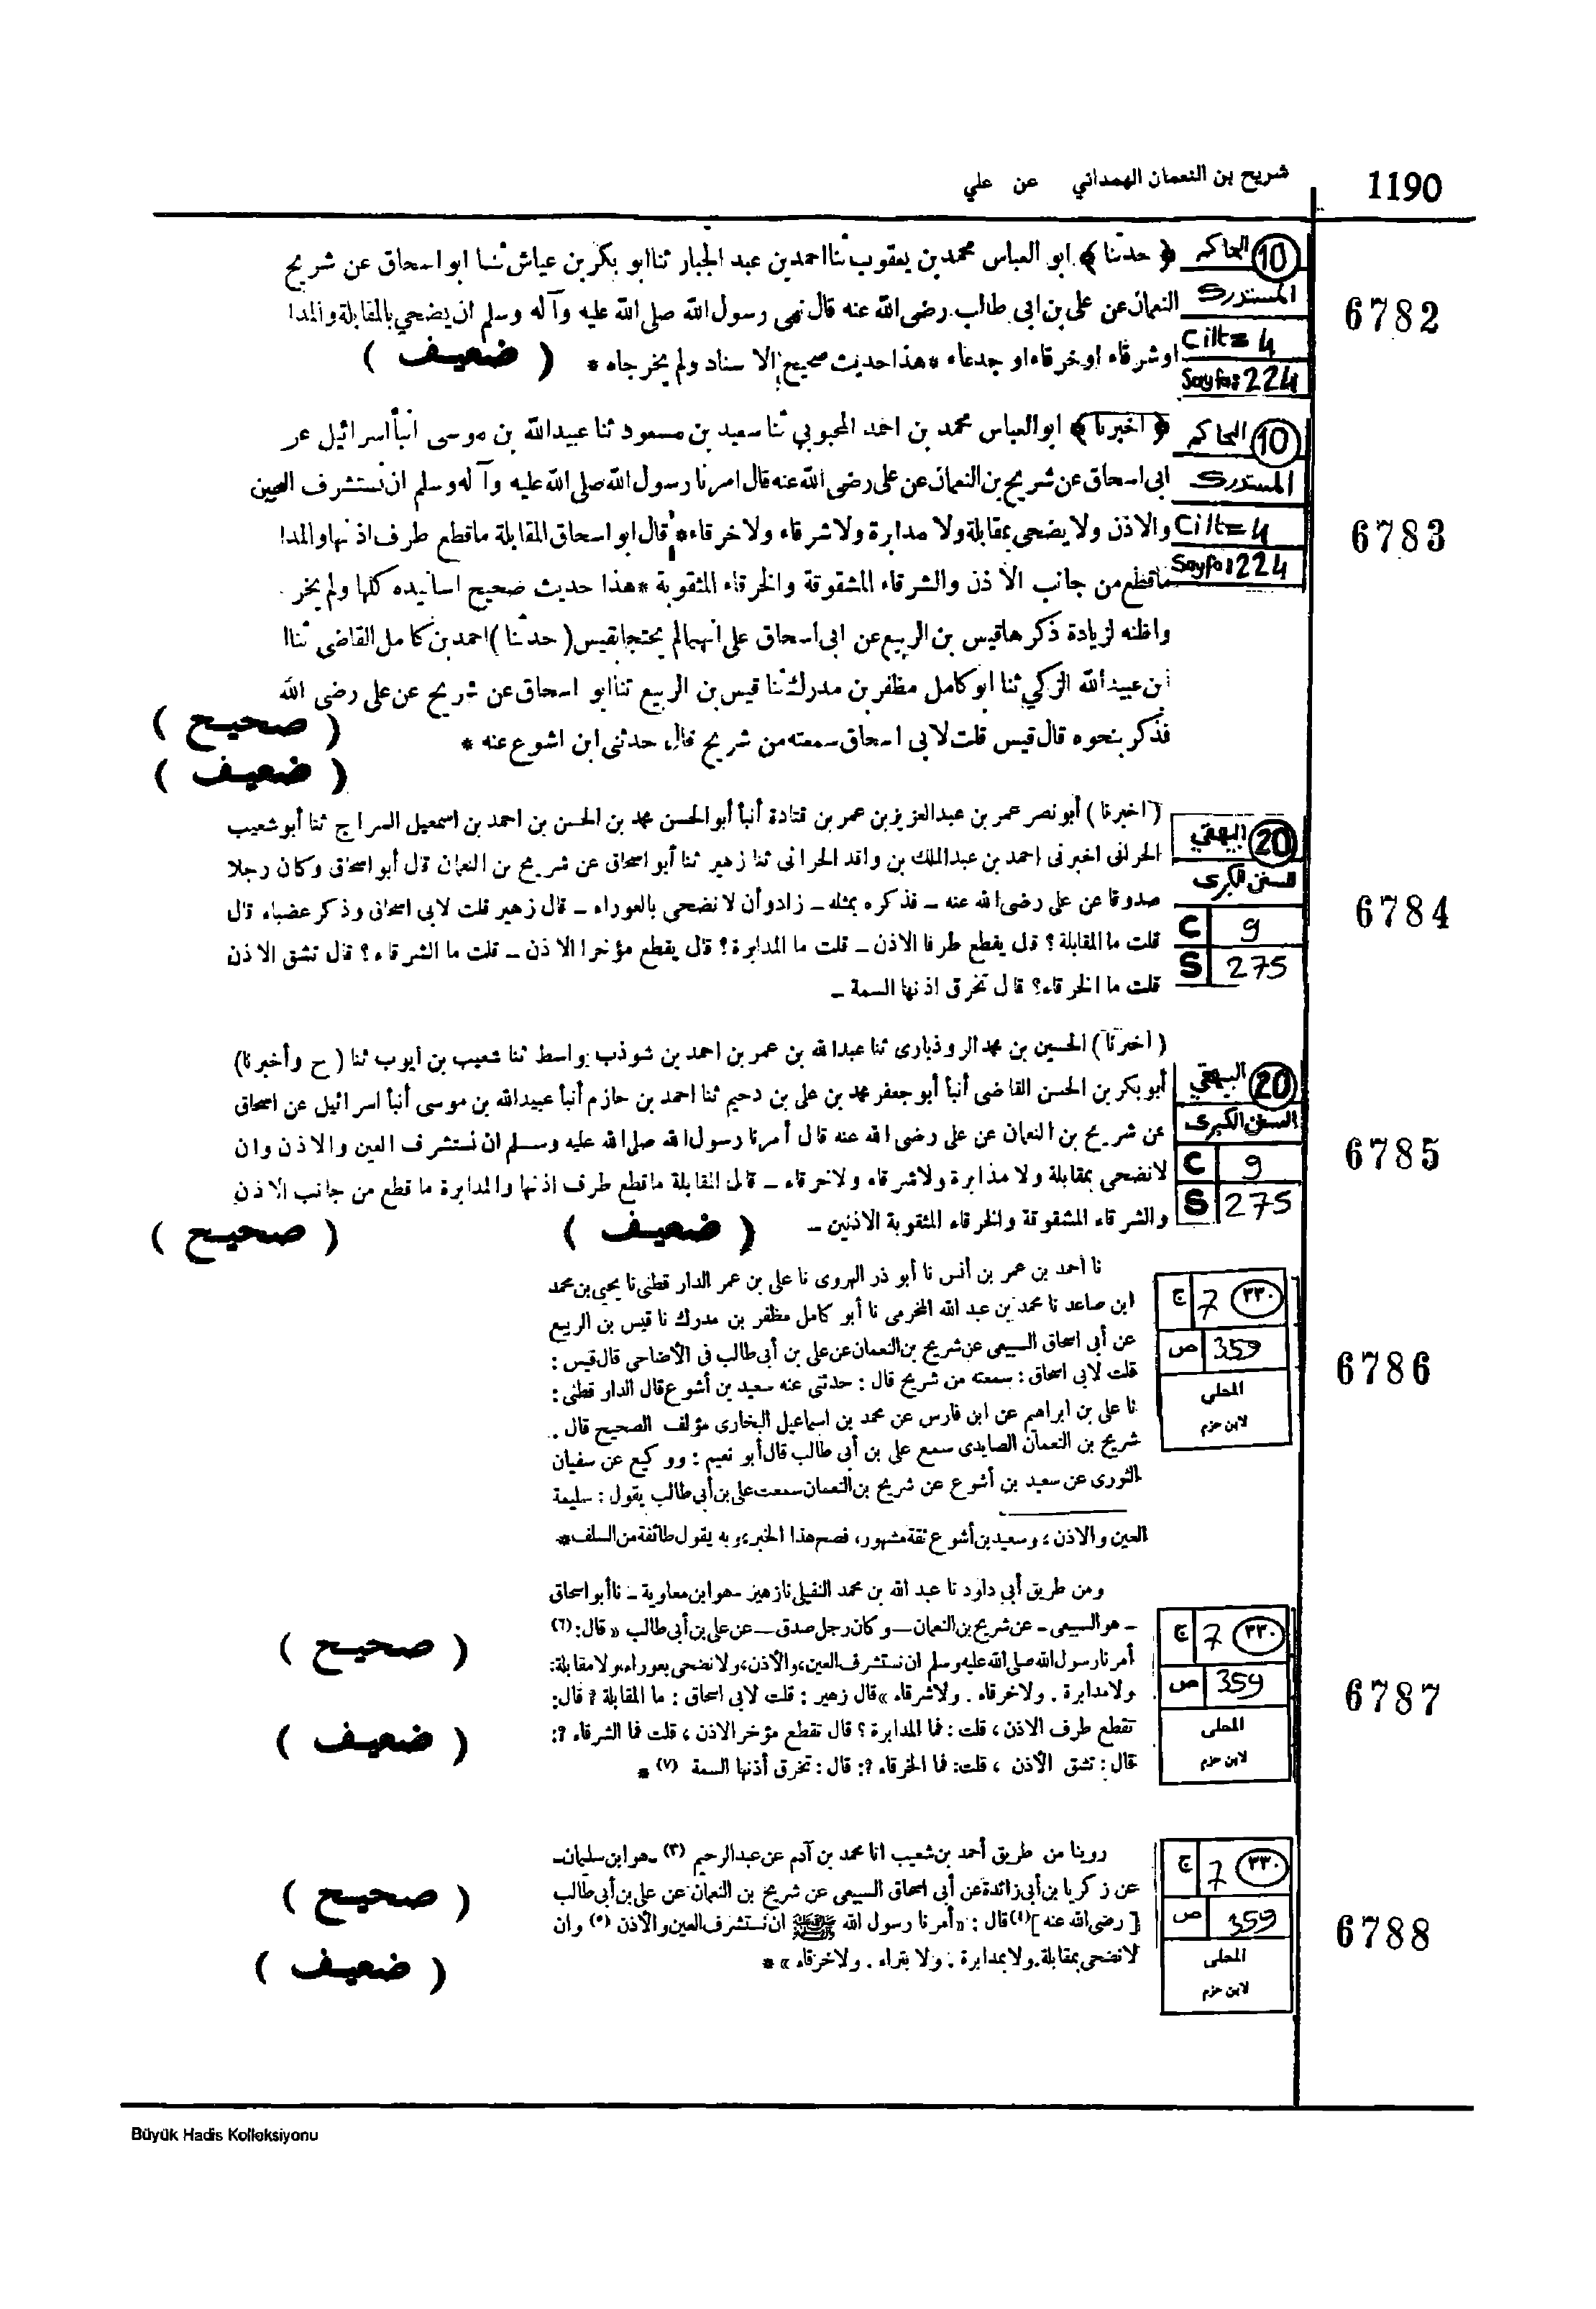 1190
شريح بن النعمان الهمداني عن علي
6782
10 الحاكم
المستدرك
Cilt= 4
Sayfa: 224
﴿ حدثنا ﴾ ابو العباس محمد بن يعقوب ثنا احمد بن عبد الجبار ثنا ابو بكر بن عياش ثنا ابو اسحاق عن شريح
النعمان عن على بن ابى طالب رضى الله عنه قال نهى رسول الله صلى الله عليه وآله وسلم ان يضحي بالمقابلة والمدا
او شرقاء او خرقاء او جدعاء * هذا حديث صحيح الاسناد ولم يخرجاه *
( ضعيف )
6783
10 الحاكم
المستدرك
Cilt= 4
Sayfa: 224
﴿ اخبرنا ﴾ ابو العباس محمد بن احمد المحبوبي ثنا سعيد بن مسعود ثنا عبيد الله بن موسى انبأ اسرائيل عر
ابى اسحاق عن شريح بن النعمان عن على رضى الله عنه قال امرنا رسول الله صلى الله عليه وآله وسلم ان نستشرف العين
والاذن ولا يضحى بمقابلة ولا مدابرة ولا شرقاء ولا خرقاء * قال ابو اسحاق المقابلة ماقطع طرف اذنها والمدا
ماقطع من جانب الاذن والشرقاء المشقوقة والخرقاء المثقوبة * هذا حديث صحيح اسانيده كلها ولم يخر
واظنه لزيادة ذكرها قيس بن الربيع عن ابى اسحاق على انهما لم يحتجا بقيس ( حدثنا ) احمد بن كامل القاضى ثنا ا
بن عبيد الله الزكي ثنا ابو كامل مظفر بن مدرك ثنا قيس بن الربيع ثنا ابو اسحاق عن شريح عن على رضى الله
فذكر بنحوه قال قيس قلت لابى اسحاق سمعته من شريح قال حدثنى ابن اشوع عنه *
( صحيح )
( ضعيف )
6784
20 البيهقي
السنن الكبرى
C 9
S 275
( اخبرنا ) أبو نصر عمر بن عبد العزيز بن عمر بن قتادة أنبأ أبو الحسن محمد بن الحسن بن احمد بن اسمعيل السراج ثنا أبو شعيب
الحرانى اخبرنى احمد بن عبد الملك بن واقد الحرانى ثنا زهير ثنا أبو اسحاق عن شريح بن النعمان قال أبو اسحاق وكان رجلا
صدوقا عن على رضى الله عنه ــ فذكره بمثله ــ زاد وأن لا نضحى بالعوراء ــ قال زهير قلت لابى اسحاق وذكر عضباء قال
قلت ما المقابلة ؟ قال يقطع طرفا الاذن ــ قلت ما المدابرة ؟ قال يقطع مؤخرا الاذن ــ قلت ما الشرقاء ؟ قال تشق الاذن
قلت ما الخرقاء ؟ قال تخرق اذنها السمة ــ
6785
20 البيهقي
السنن الكبرى
C 9
S 275
( اخبرنا ) الحسين بن محمد الروذبارى ثنا عبد الله بن عمر بن احمد بن شوذب بواسط ثنا شعيب بن أيوب ثنا ( ح وأخبرنا )
أبو بكر بن الحسن القاضى أنبأ أبو جعفر محمد بن على بن دحيم ثنا احمد بن حازم أنبأ عبيد الله بن موسى أنبأ اسرائيل عن اسحاق
عن شريح بن النعمان عن على رضى الله عنه قال أمرنا رسول الله صلى الله عليه وسلم ان نستشرف العين والاذن وان
لا نضحى بمقابلة ولا مدابرة ولا شرقاء ولا خرقاء ــ قال المقابلة ماقطع طرف اذنها والمدابرة ما قطع من جانب الاذن
والشرقاء المشقوقة والخرقاء المثقوبة الاذنين ــ
( ضعيف )
( صحيح )
6786
٣٣٠ 7 ج
359 ص
المحلي
لابن حزم
نا أحمد بن عمر بن أنس نا أبو ذر الهروى نا على بن عمر الدار قطنى نا يحيى بن محمد
ابن صاعد نا محمد بن عبد الله المخرمى نا أبو كامل مظفر بن مدرك نا قيس بن الربيع
عن أبى اسحاق السبيعى عن شريح بن النعمان عن على بن أبى طالب فى الأضاحى قال قيس :
قلت لابى اسحاق : سمعته من شريح قال : حدثنى عنه سعيد بن أشوع قال الدار قطنى :
نا على بن ابراهيم عن ابن فارس عن محمد بن اسماعيل البخارى مؤلف الصحيح قال .
شريح بن النعمان الصايدى سمع على بن أبى طالب قال أبو نعيم : ووكيع عن سفيان
الثورى عن سعيد بن أشوع عن شريح بن النعمان سمعت على بن أبى طالب يقول : سليمة
العين والاذن ، وسعيد بن أشوع ثقة مشهور ، فصح هذا الخبر ، وبه يقول طائفة من السلف *
6787
٣٣٠ 7 ج
359 ص
المحلى
لابن حزم
ومن طريق أبى داود نا عبد الله بن محمد النفيلى نا زهير ــ هو ابن معاوية ــ نا أبو اسحاق
ــ هو السبيعى ــ عن شريح بن النعمان ــ وكان رجل صدق ــ عن على بن أبى طالب « قال : (٦)
أمرنا رسول الله صلى الله عليه وسلم ان نستشرف العين ، والأذن ، ولا نضحى بعوراء ، ولا مقابلة :
ولا مدابرة . ولا خرقاء . ولا شرقاء » قال زهير : قلت لابى اسحاق : ما المقابلة ؟ قال :
تقطع طرف الاذن ، قلت : فما المدابرة ؟ قال تقطع مؤخر الاذن ، قلت فما الشرقاء ؟ :
قال : تشق الأذن ، قلت : فما الخرقاء ؟ : قال : تخرق أذنها السمة (٧) *
( صحيح )
( ضعيف )
6788
٣٣٠ 7 ج
359 ص
المحلى
لابن حزم
روينا من طريق أحمد بن شعيب انا محمد بن آدم عن عبد الرحيم (٣) ــ هو ابن سليمان ــ
عن زكريا بن أبى زائدة عن أبى اسحاق السبيعى عن شريح بن النعمان عن على بن أبى طالب
[ رضى الله عنه ] (٤) قال : « أمرنا رسول الله ﷺ ان نستشرف العين والأذن (٥) وان
لا نضحى بمقابلة . ولا بمدابرة . ولا بتراء . ولا خرقاء » *
( صحيح )
( ضعيف )
Büyük Hadis Kolleksiyonu